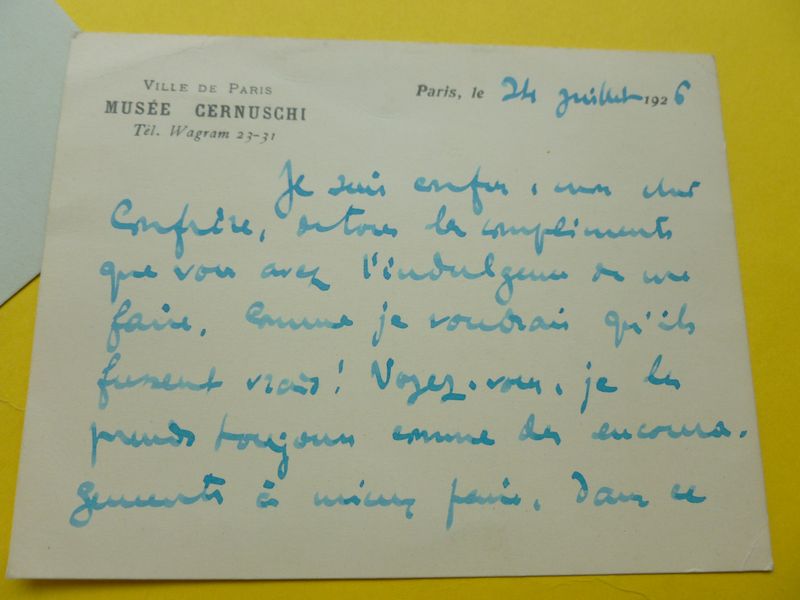 VILLE DE PARIS
MUSÉE CERNUSCHI
Tél. Wagram 23-31
Paris, le 24 juillet 1926
Je suis confus, mon cher
Confrère, de tous les compliments
que vous avez l'indulgence de me
faire. Comme je voudrais qu'ils
fussent vrais! Voyez-vous, je les
prends toujours comme des encoura-
gements à mieux faire. Dans ce